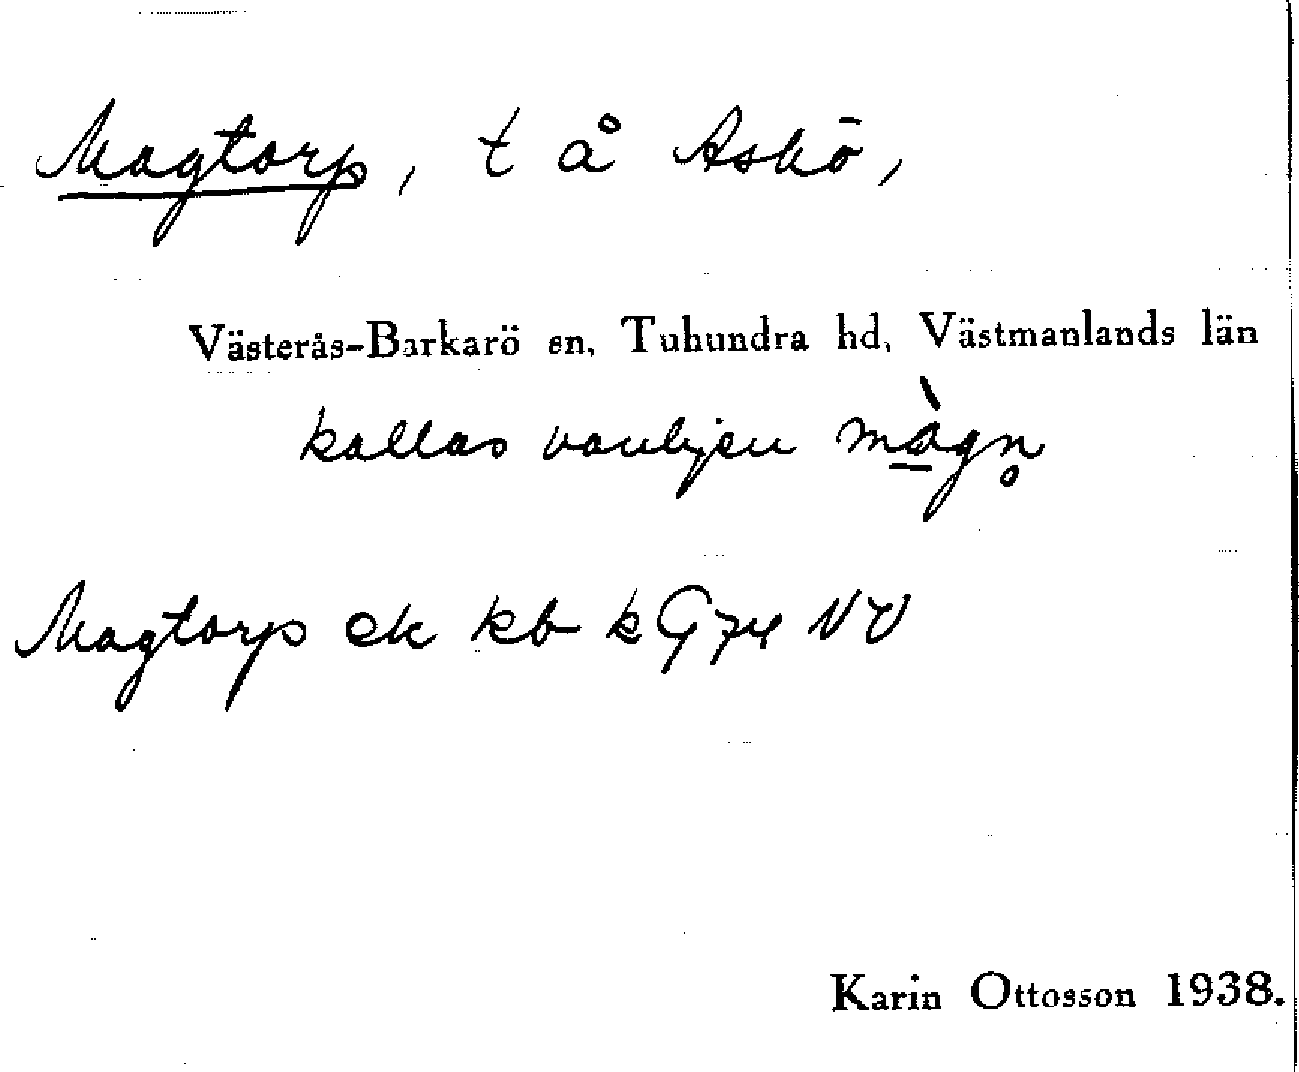 Magtorp, t å Askö,
Västerås-Barkarö sn, Tuhundra hd, Västmanlands län
kallas vanligen màgn̥
Magtorp ek kb k G74 NV
Karin Ottosson 1938.